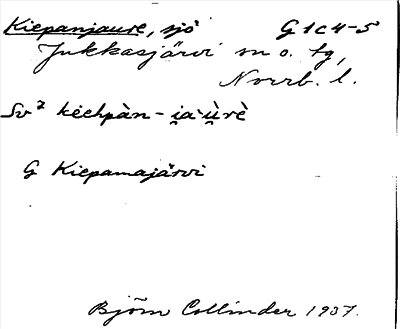 Kiepanjaure, sjö G1c4-5
Jukkasjärvi sn o. tg,
Norrb. l.
Sv² kèehpàn - i̯a·ùrè
G Kiepamajärvi
Björn Collinder 1937.